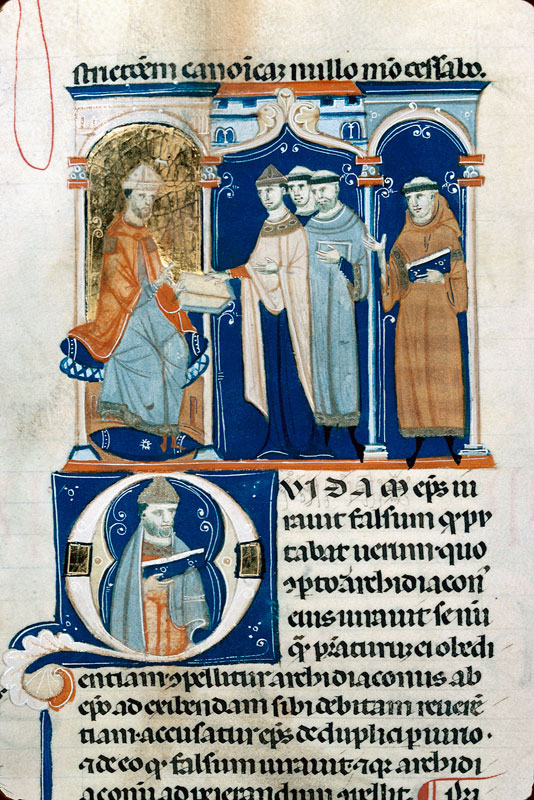 strictõem canoĩcaȝ nullo mõ cessabo.
QVIDAM ep̃s iu
rauit falsum qð pu
tabat uerum. quo
ɔperto archidiacoñ
eius iurauit se nũ
qȝ p̃staturum ei obedi
entiam. ɔpellitur archidiaconus ab
ep̃o ad exibendam sibi debitam reuerẽ
tiam. accusatur ep̃s de duplici piurio.
⁊ de eo qð falsum iurauit. ⁊ qȝ archidi
aconũ ad peierandum ɔpellit. Pri